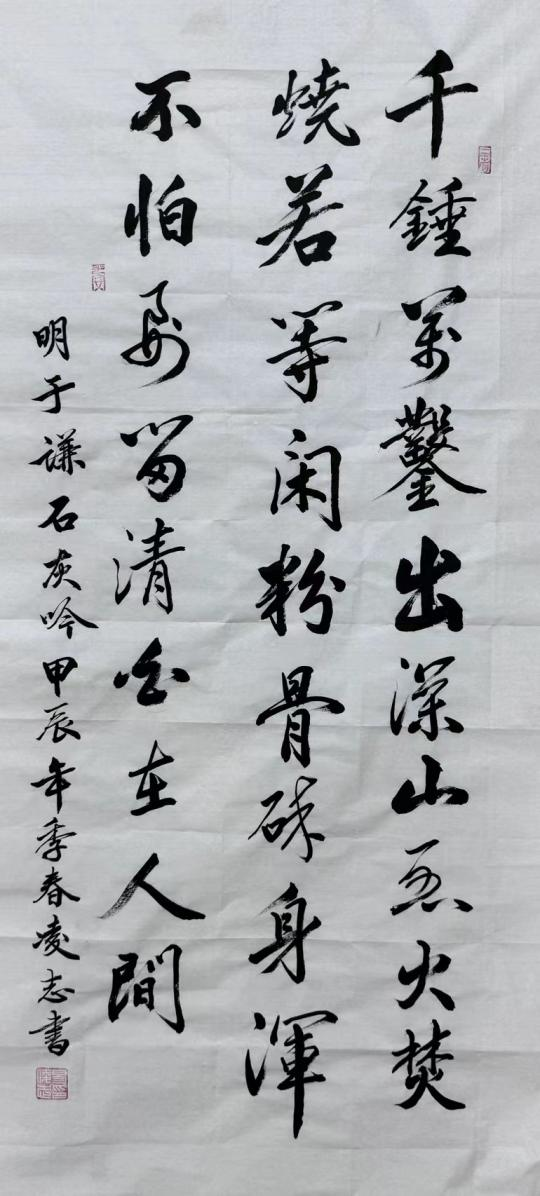 千錘萬鑿出深山烈火焚
燒若等闲粉骨碎身渾
不怕要留清白在人間
明于謙石灰吟甲辰年季春凌志書